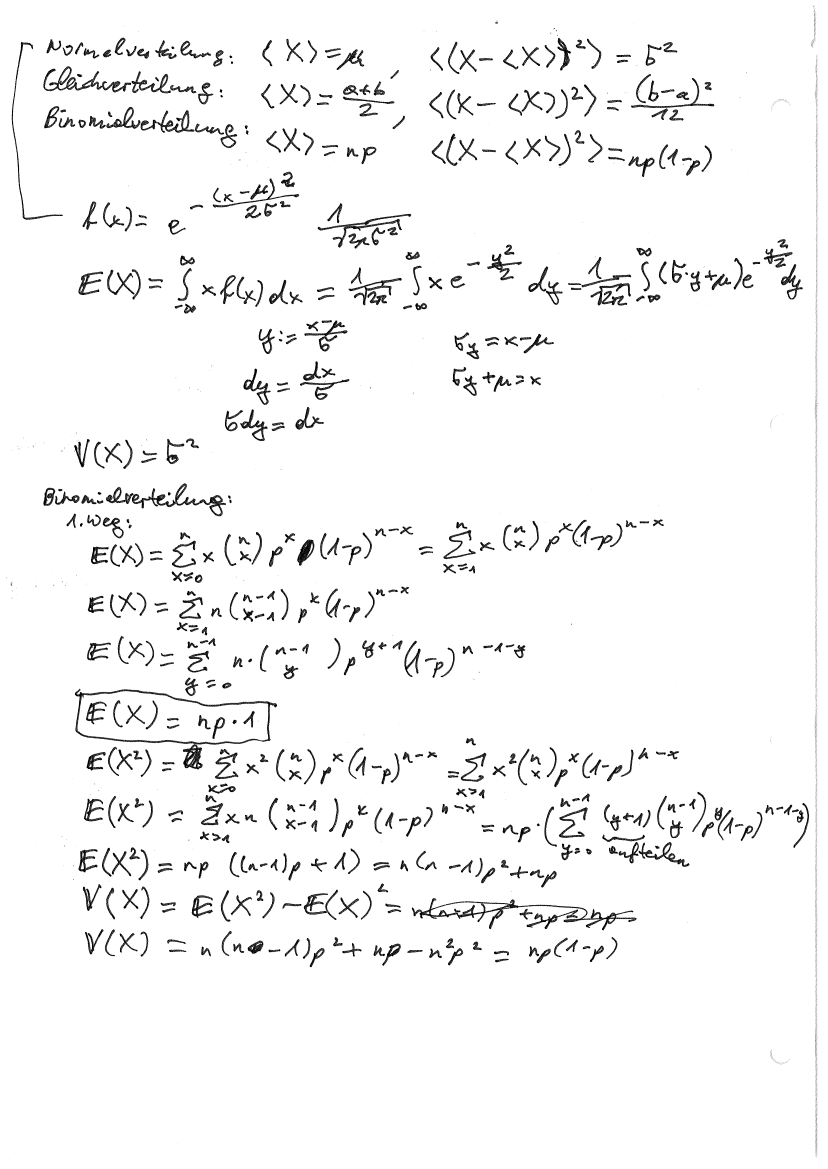 Normalverteilung: ⟨X⟩ = μ, ⟨(X-⟨X⟩)²⟩ = σ²
Gleichverteilung: ⟨X⟩ = (a+b)/2, ⟨(X-⟨X⟩)²⟩ = (b-a)²/12
Binomialverteilung: ⟨X⟩ = np ⟨(X-⟨X⟩)²⟩ = np(1-p)
f(x) = e^(-(x-μ)²/2σ²) 1/√(2πσ²)
E(X) = ∫_{-∞}^{∞} x f(x) dx = 1/√(2π) ∫_{-∞}^{∞} x e^(-y²/2) dy = 1/√(2π) ∫_{-∞}^{∞} (σ·y+μ) e^(-y²/2) dy
y := (x-μ)/σ σy = x-μ
dy = dx/σ σy+μ = x
σdy = dx
V(X) = σ²
Binomialverteilung:
1. Weg:
E(X) = ∑_{x=0}^{n} x (n x) p^x (1-p)^{n-x} = ∑_{x=1}^{n} x (n x) p^x (1-p)^{n-x}
E(X) = ∑_{x=1}^{n} n (n-1 x-1) p^x (1-p)^{n-x}
E(X) = ∑_{y=0}^{n-1} n·(n-1 y) p^{y+1} (1-p)^{n-1-y}
E(X) = np·1
E(X²) = ∑_{x=0}^{n} x² (n x) p^x (1-p)^{n-x} = ∑_{x>1}^{n} x² (n x) p^x (1-p)^{n-x}
E(X²) = ∑_{x>1}^{n} x n (n-1 x-1) p^x (1-p)^{n-x} = np·(∑_{y=0}^{n-1} (y+1) (n-1 y) p^y (1-p)^{n-1-y})
aufteilen
E(X²) = np ((n-1)p + 1) = n(n-1)p² + np
V(X) = E(X²) - E(X)² = n(n-1)p² + np = np
V(X) = n(n-1)p² + np - n²p² = np(1-p)